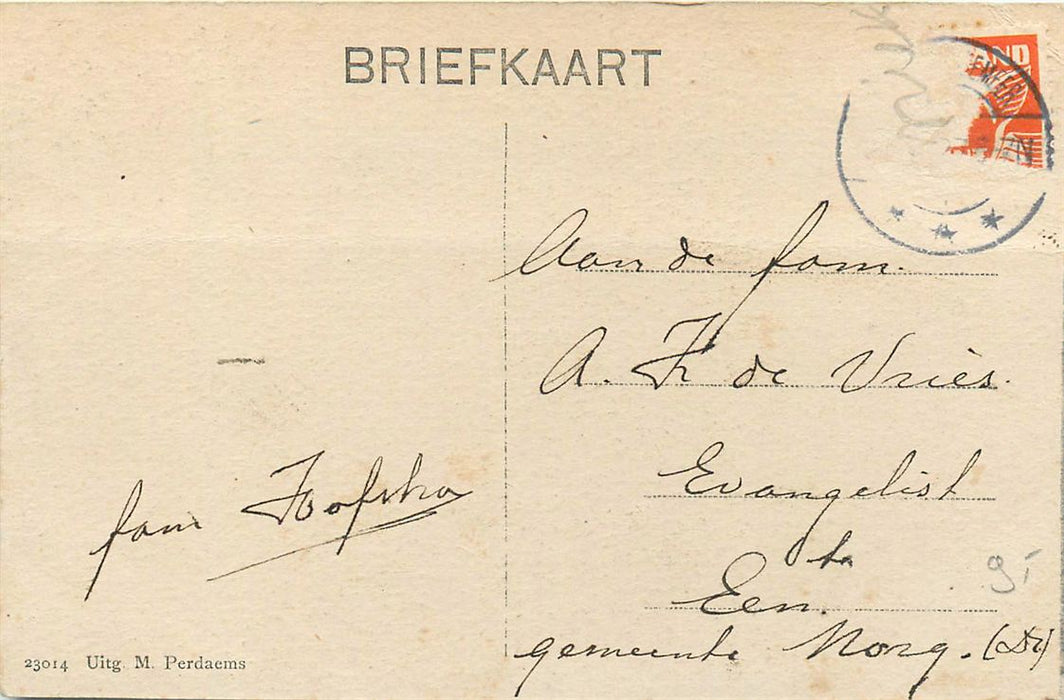 BRIEFKAART
AND
Aan de fam.
A. H. de Vries.
Evangelist
te
Een.
gemeente Norg. (Dr)
fam Hofstra
23014 Uitg. M. Perdaems